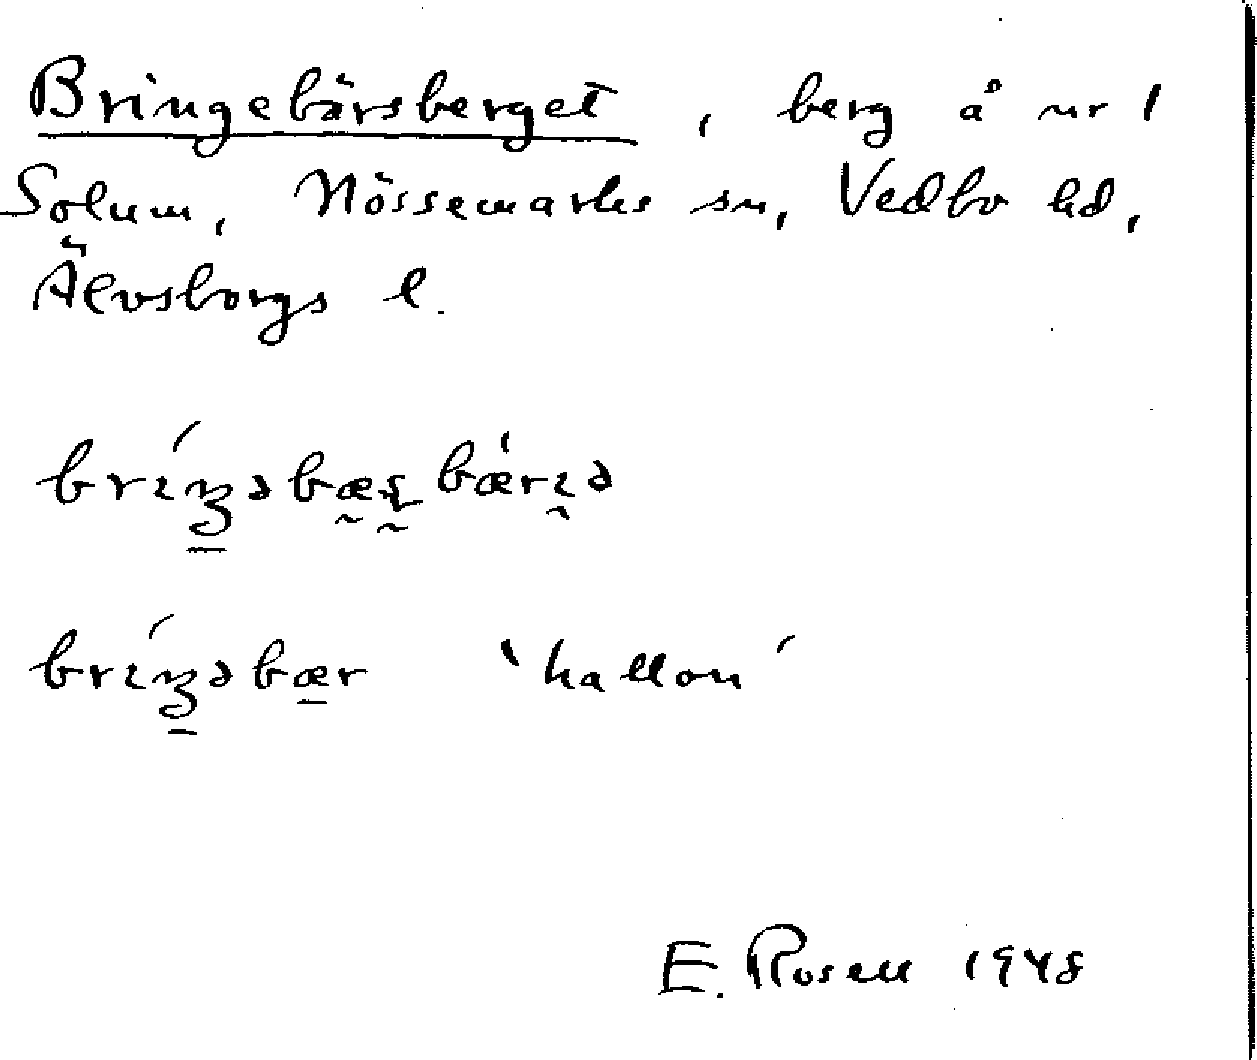 Bringebärsberget, berg å nr 1
Solum, Nössemarks sn, Vedbo hd,
Älvsborgs l.
'hallon'
E. Rosell 1948